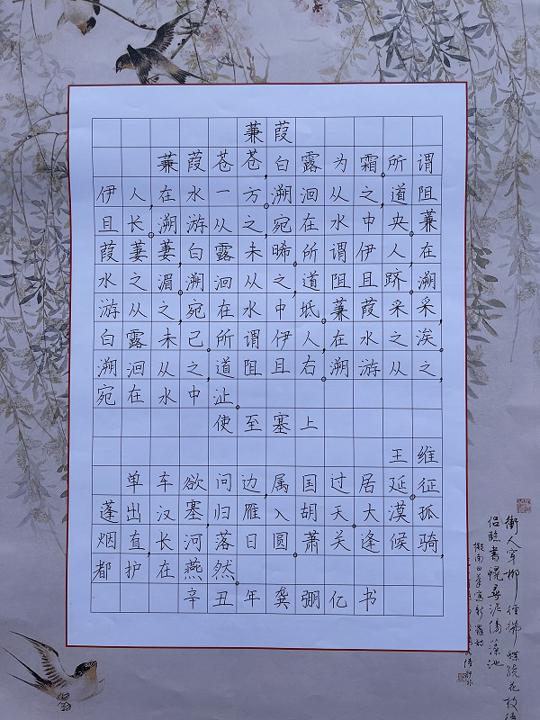 蒹葭
蒹葭苍苍,白露为霜。所谓
伊人,在水一方。溯洄从之,道阻
且长。溯游从之,宛在水中央。蒹
葭萋萋,白露未晞。所谓伊人,在
水之湄。溯洄从之,道阻且跻。溯
游从之,宛在水中坻。蒹葭采采,
白露未已。所谓伊人,在水之涘。
溯洄从之,道阻且右。溯游从之,
宛在水中沚。
使至塞上
王维
单车欲问边,属国过居延。征
蓬出汉塞,归雁入胡天。大漠孤
烟直,长河落日圆。萧关逢候骑,
都护在燕然。
辛丑年龚弼亿书